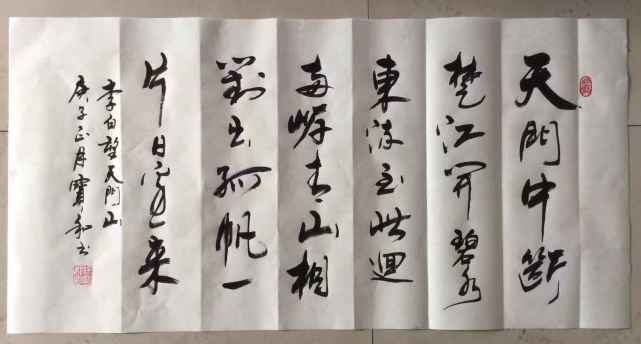 天門中斷
楚江開碧水
東流至此迴
兩岸青山相
對出孤帆一
片日邊來
李白望天門山
庚子正月寶和書